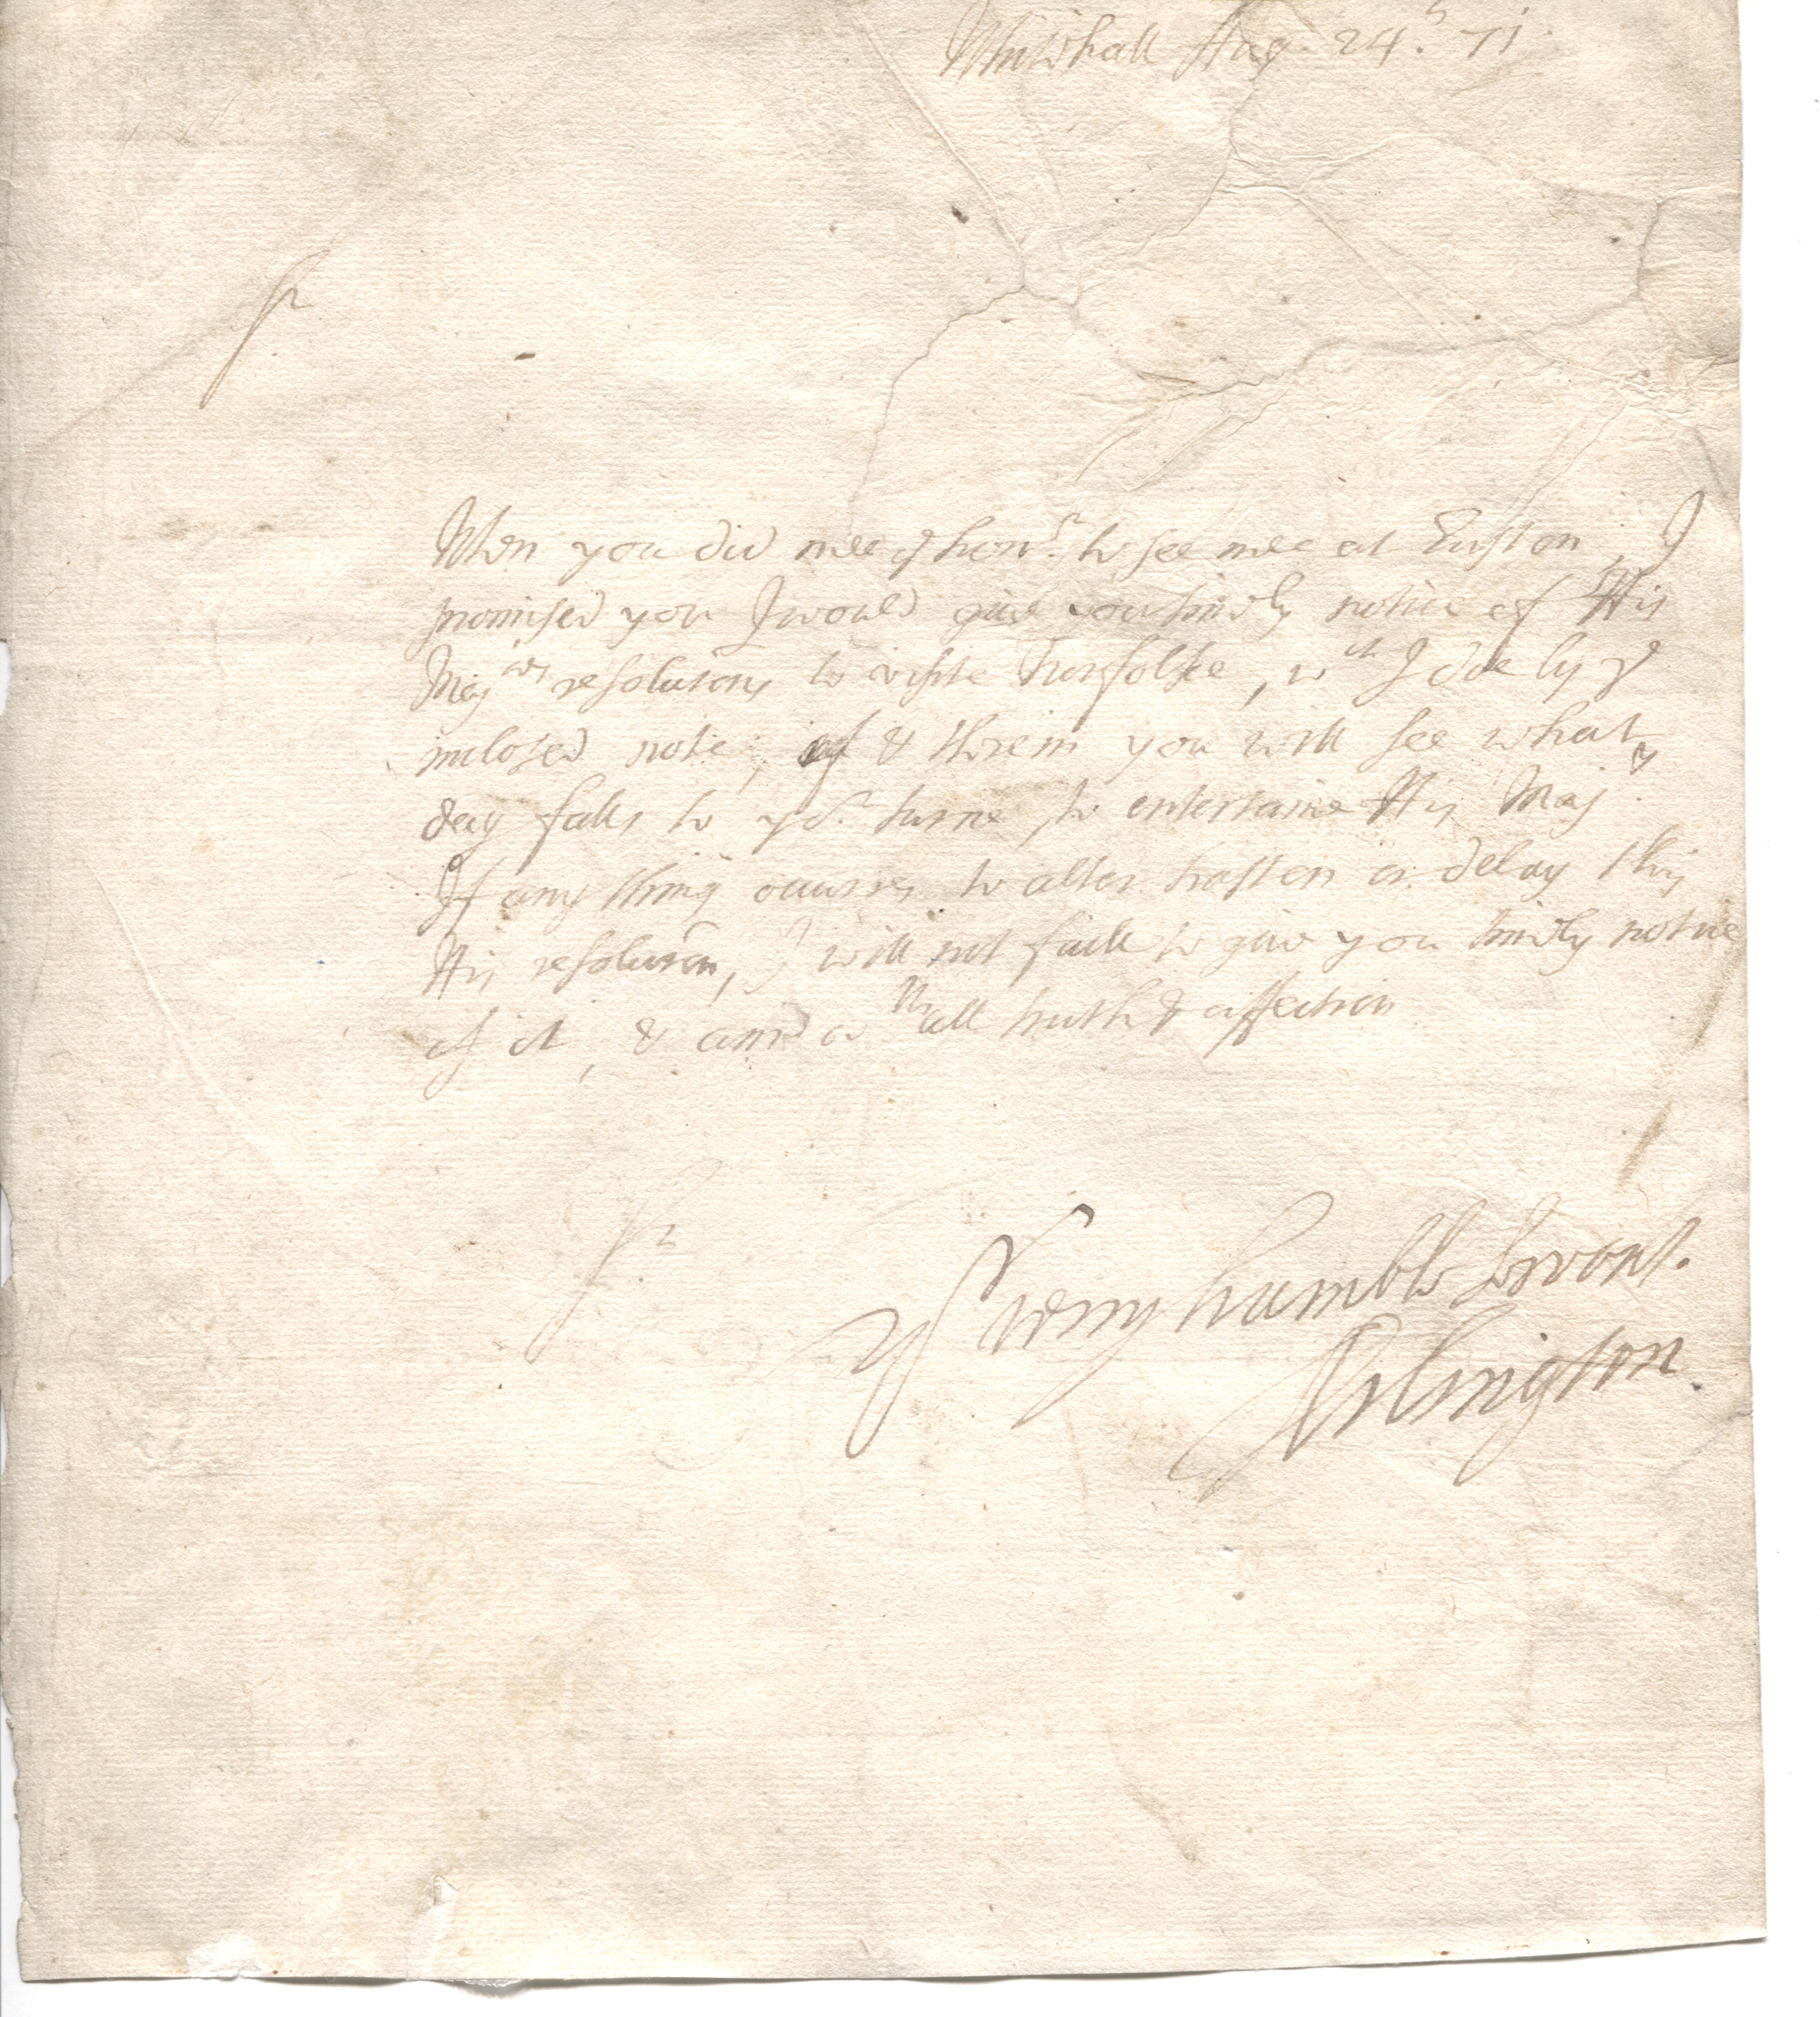 Whitehall Aug. 24.th 71.
Sr
When you did mee ye honr. to see mee at Euston, I
promised you I would give you timely notice of His
Majties resolutions to visite Norfolke, wch I doe by ye
inclosed note, & therein you will see what
day falls to yor. turne to entertaine His Majty.
If any thing occurres to alter hasten or delay this
His resolution, I will not faile to give you timely notice
of it, & am wth all truth & affection
Sr
Yr very humble Servant.
Arlington.